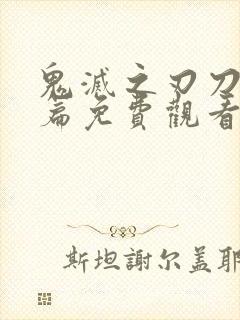 鬼滅之刃刀
篇免費觀看
斯坦謝尔盖耶